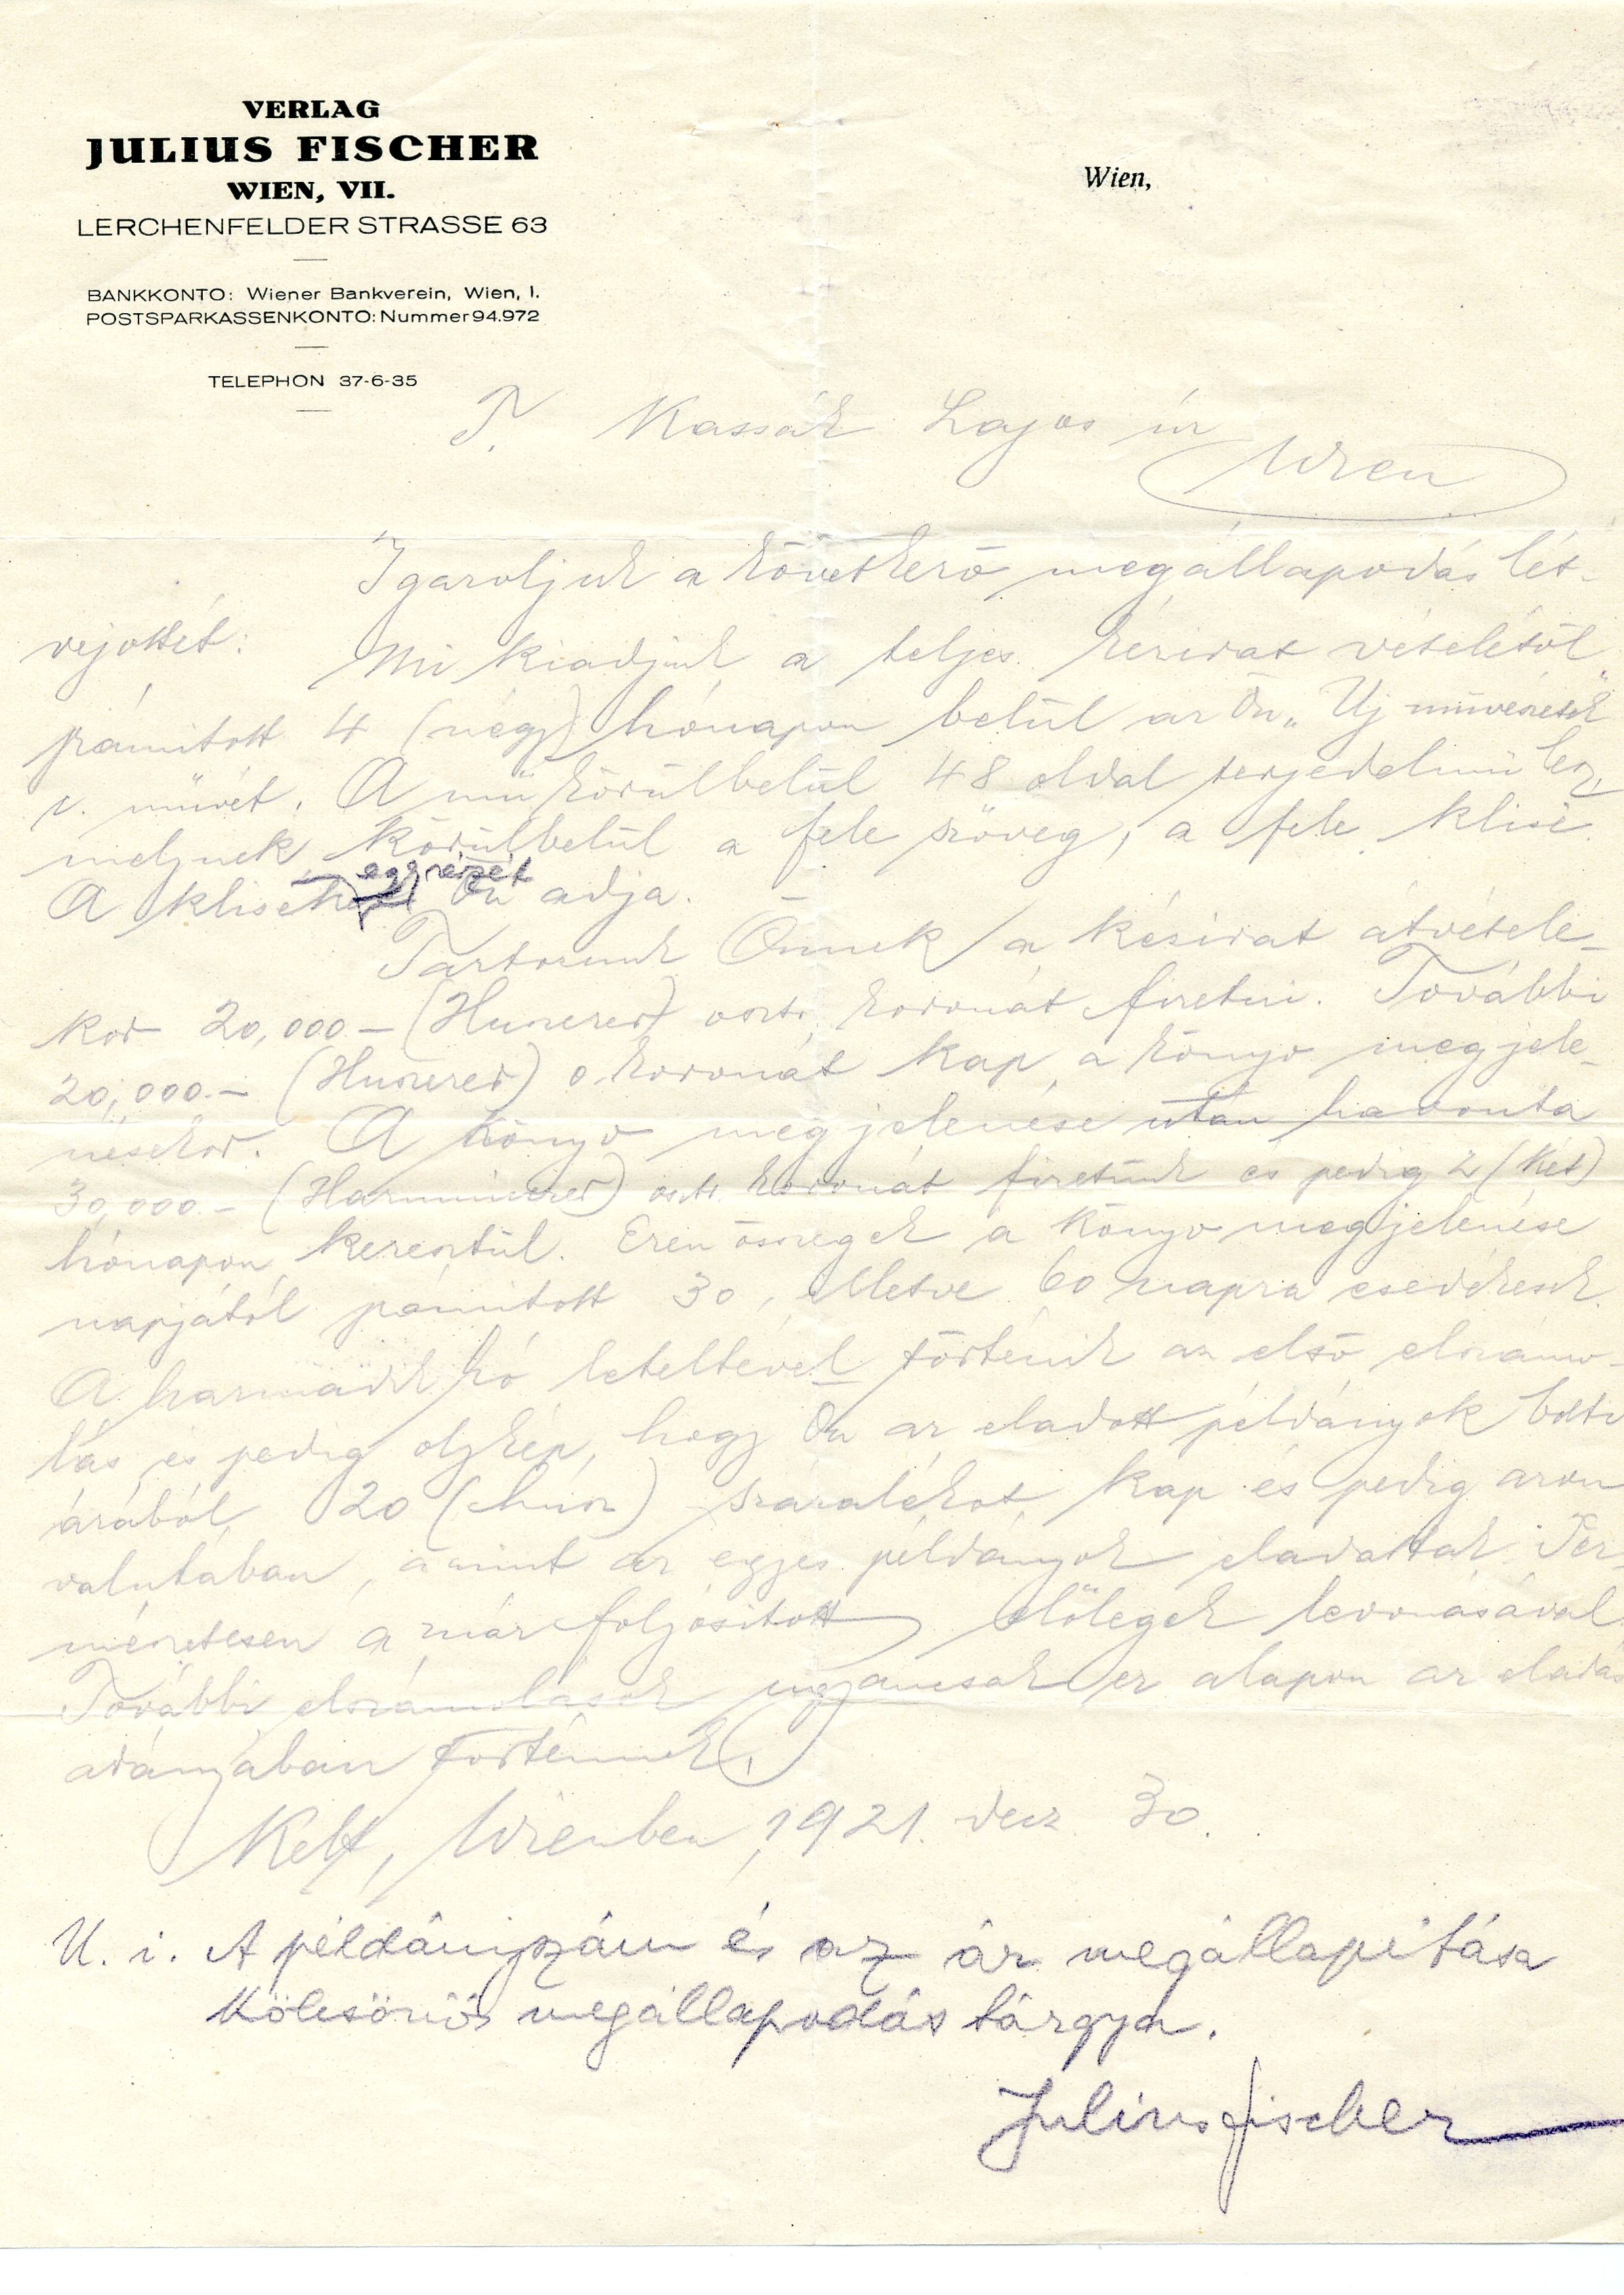 VERLAG
JULIUS FISCHER
WIEN, VII.
LERCHENFELDER STRASSE 63
BANKKONTO: Wiener Bankverein, Wien, I.
POSTSPARKASSENKONTO: Nummer 94.972
TELEPHON 37-6-35
Wien,
T. Kassák Lajos úr
Wien
Igazoljuk a következő megállapodás lét-
rejöttét:
Mi kiadjuk a teljes kézirat vételétől
számitott 4 (négy) hónapon belül az Ön „Uj művészek"
c. művét. A mű körülbelül 48 oldal terjedelmű lesz,
melynek körülbelül a fele szöveg, a fele klisé.
egyrészét
A klisék Ön adja.
Tartozunk Önnek a kézirat átvétele-
kor 20,000.— (Huszezer) osztr. koronát fizetni. További
20,000.— (Huszezer) o. koronát kap a könyv megjele-
nésekor. A könyv megjelenése után havonta
30,000.— (Harmincezer) osztr. koronát fizetünk és pedig 2 (két)
hónapon keresztül. Ezen összegek a könyv megjelenése
napjától számitott 30, illetve 60 napra esedékesek.
A harmadik hó leteltével történik az első elszámo-
lás és pedig olykép, hogy Ön az eladott példányok bolti
árából 20 (húsz) százalékot kap és pedig azon
valutában, amint az egyes példányok eladattak. Ter-
mészetesen a már folyósitott előlegek levonásával.
További elszámolások ugyancsak ez alapon az eladás
arányában történnek.
Kelt, Wienben, 1921. dez 30.
U. i. A példányszám és az ár megállapitása
kölcsönös megállapodás tárgya.
Julius Fischer